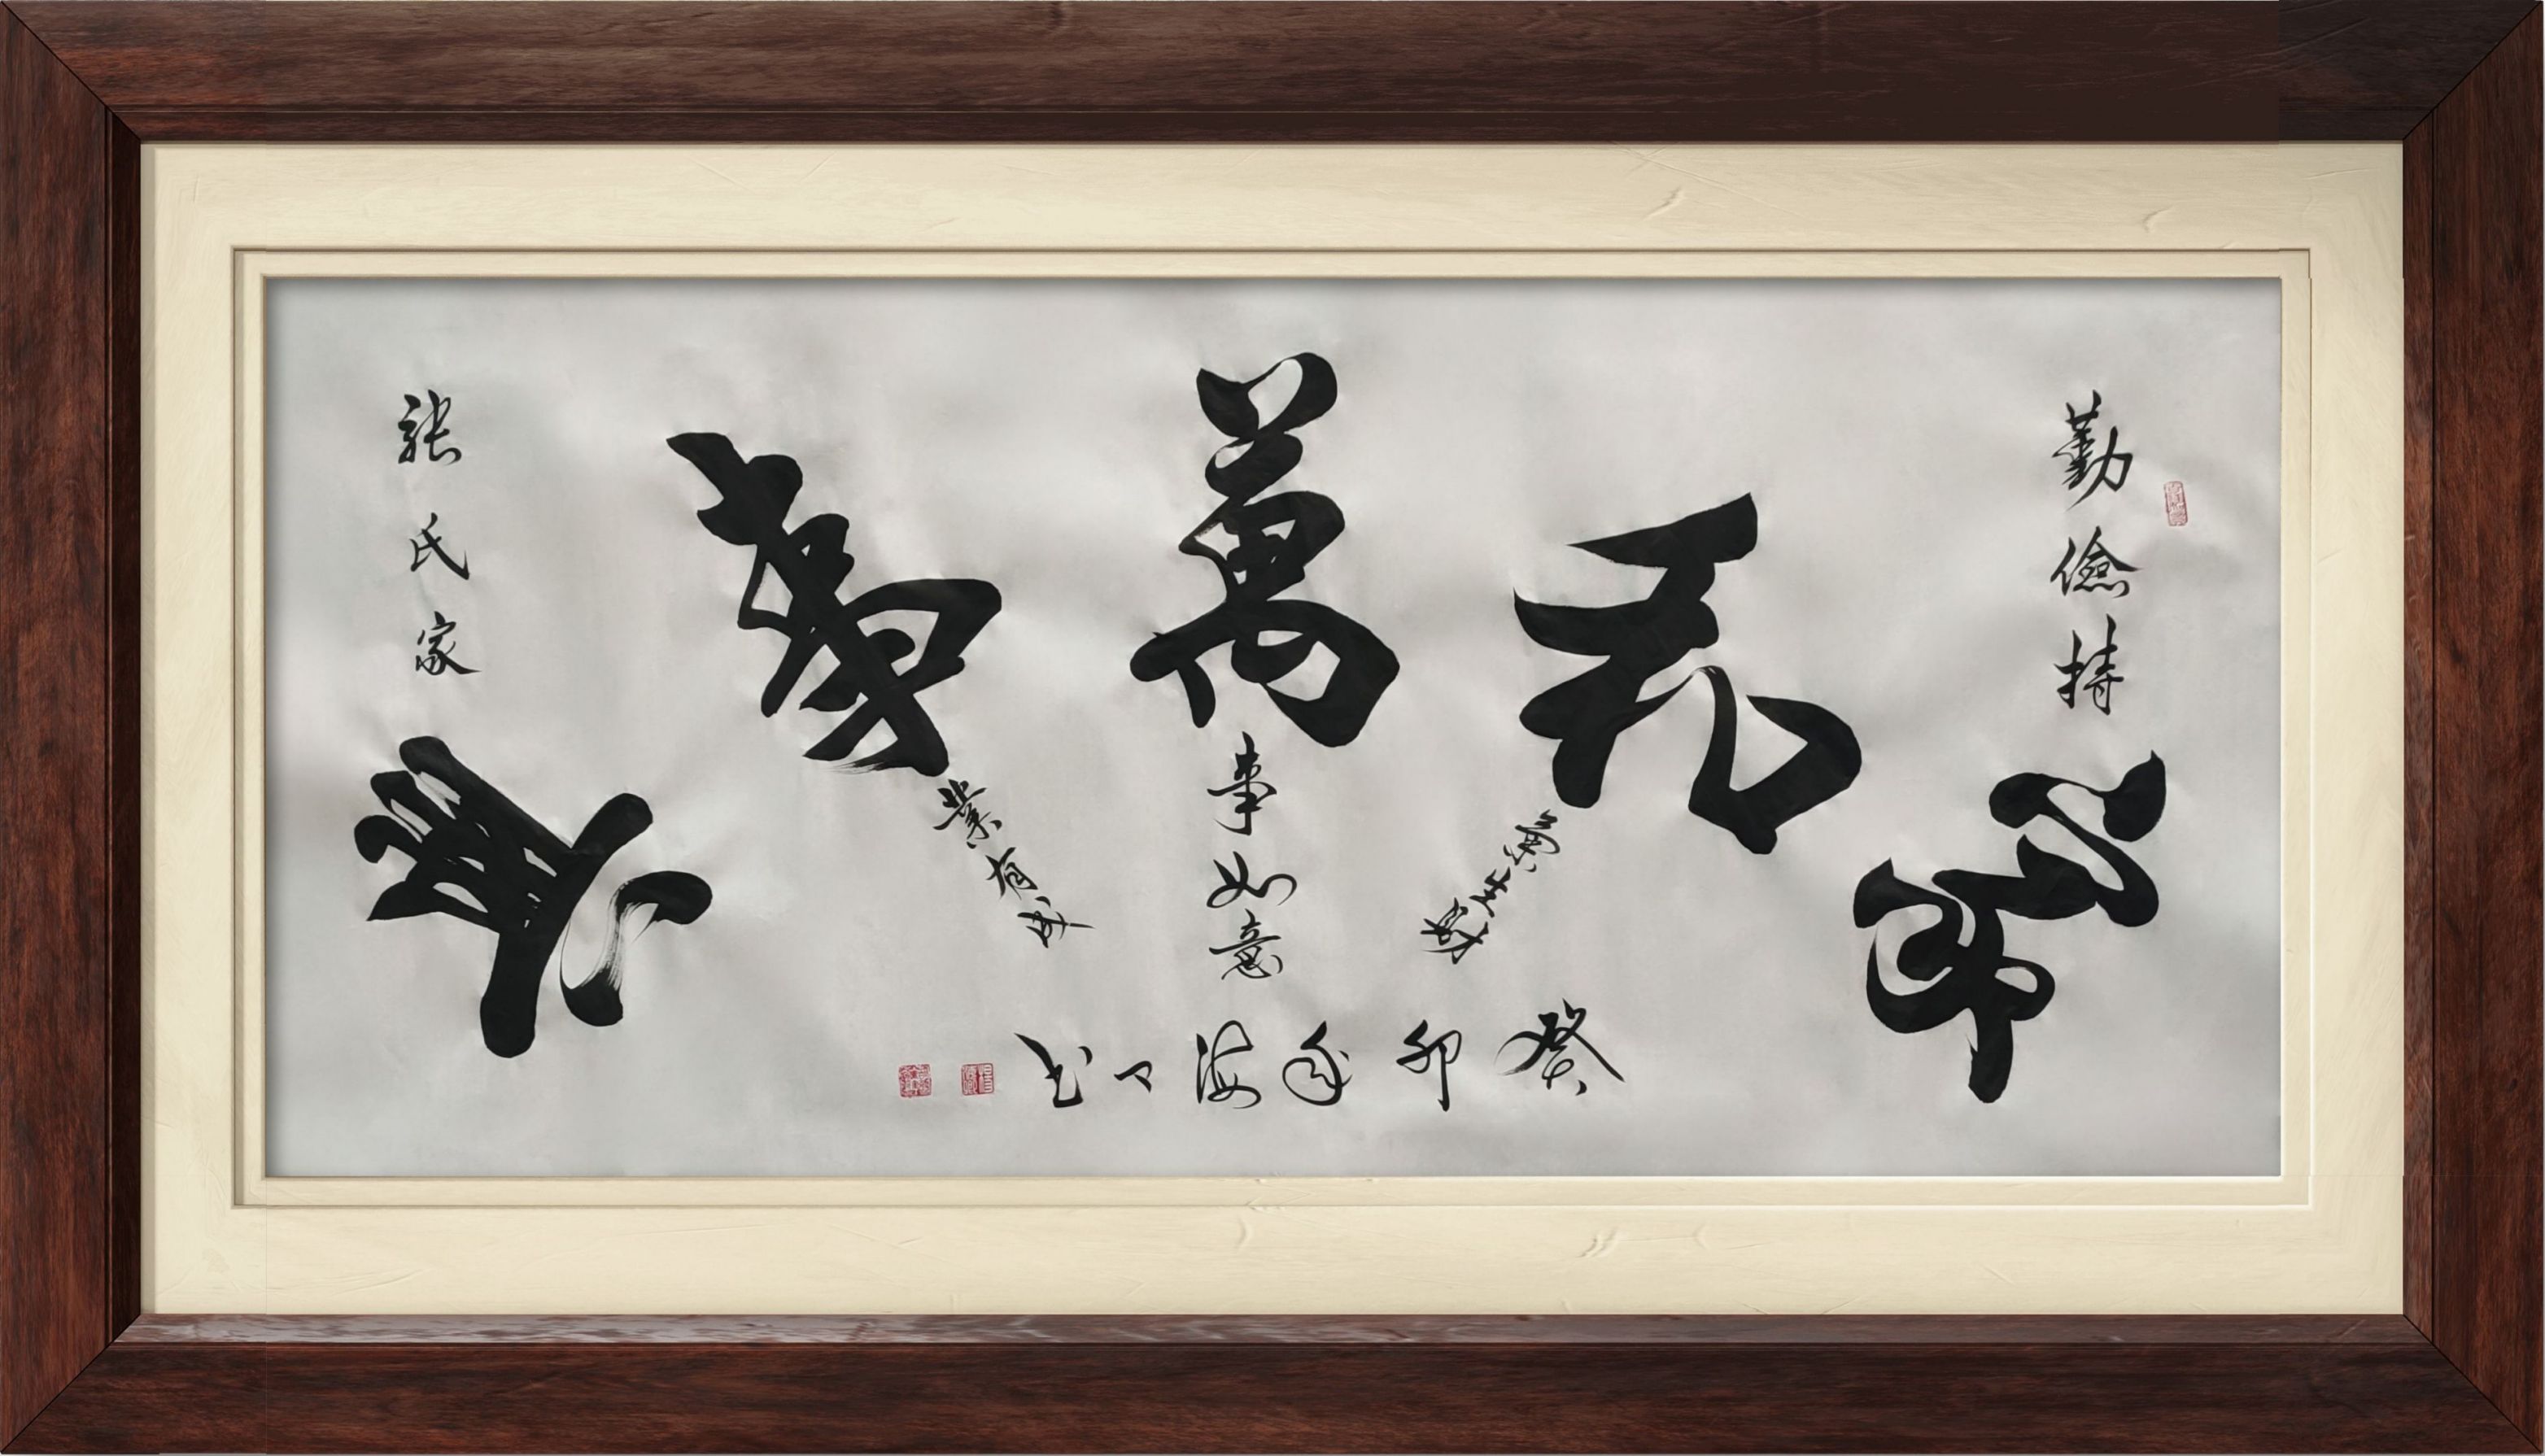 勤儉持家
和氣生財
萬事如意
事業有成
張氏家興
癸卯年海书